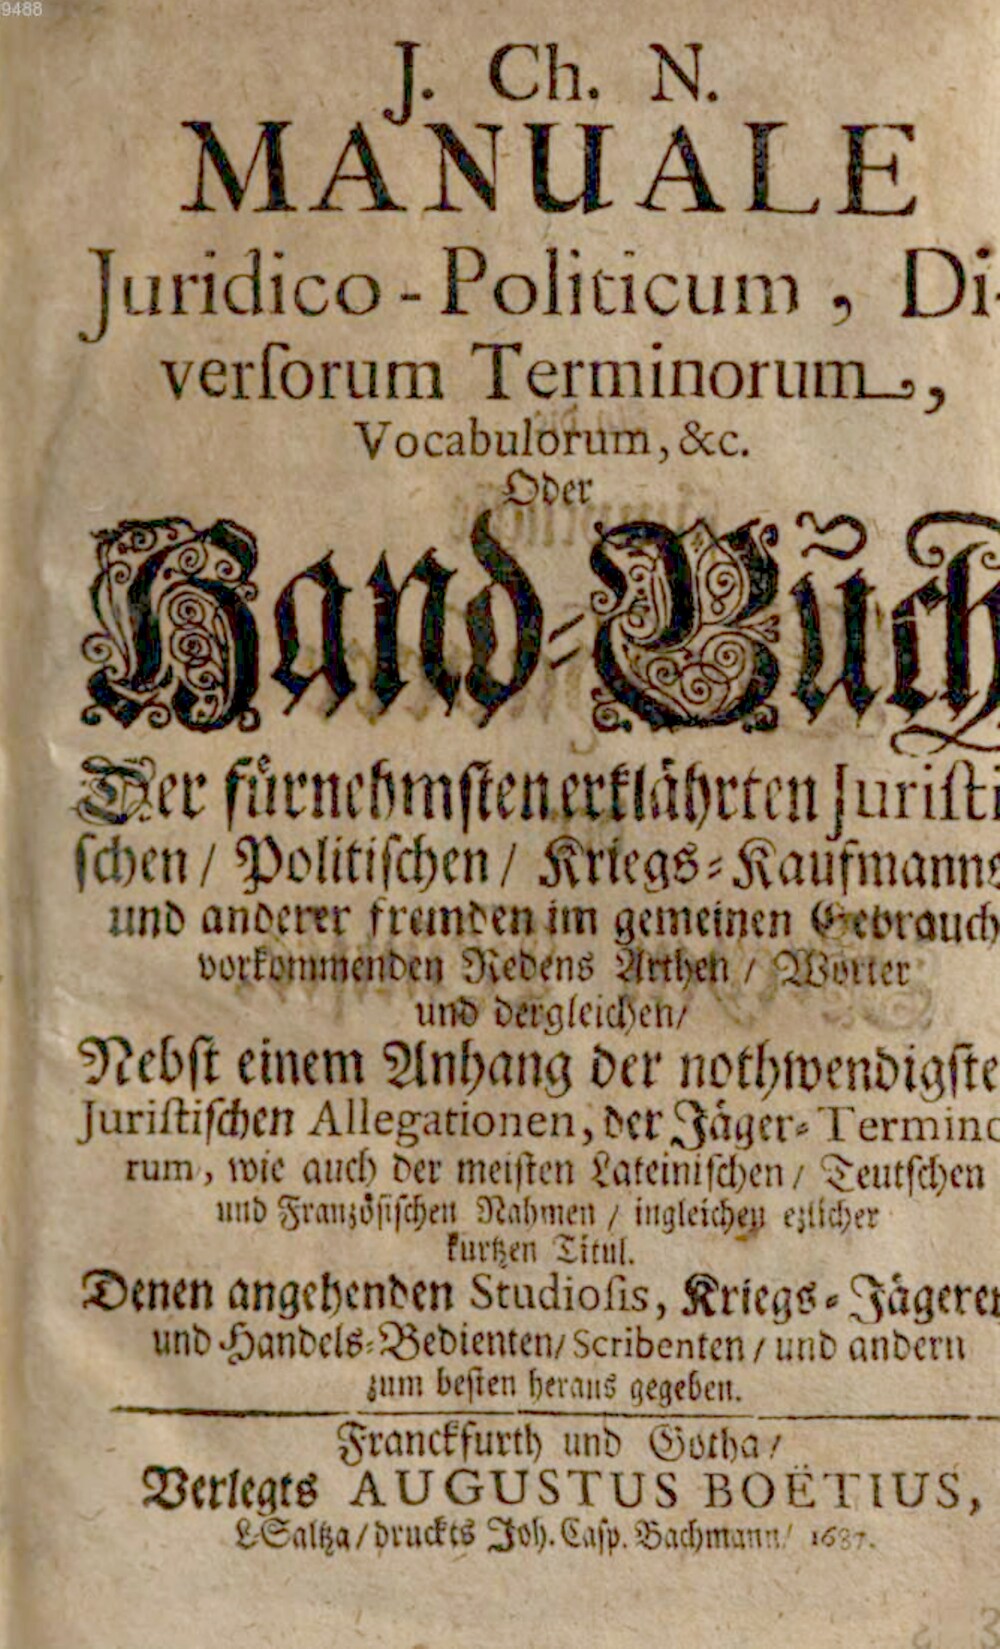 9488
J. Ch. N.
MANUALE
Juridico-Politicum, Di-
verſorum Terminorum,
Vocabulorum, &c.
Oder
Hand-Buch
Der fürnehmſten erklährten Juriſti
ſchen / Politiſchen / Kriegs-Kaufmanns
und anderer fremden im gemeinen Gebrauch
vorkommenden Redens Arthen / Wörter
und dergleichen /
Nebſt einem Anhang der nothwendigſte
Juriſtiſchen Allegationen, der Jäger-Termino
rum, wie auch der meiſten Lateiniſchen / Teutſchen
und Franzöſiſchen Nahmen / ingleichen ezlicher
kurtzen Titul.
Denen angehenden Studioſis, Kriegs-Jägere
und Handels-Bedienten / Scribenten / und andern
zum beſten heraus gegeben.
Franckfurth und Gotha /
Verlegts AUGUSTUS BOËTIUS,
L-Saltza / druckts Joh. Caſp. Bachmann / 1687.